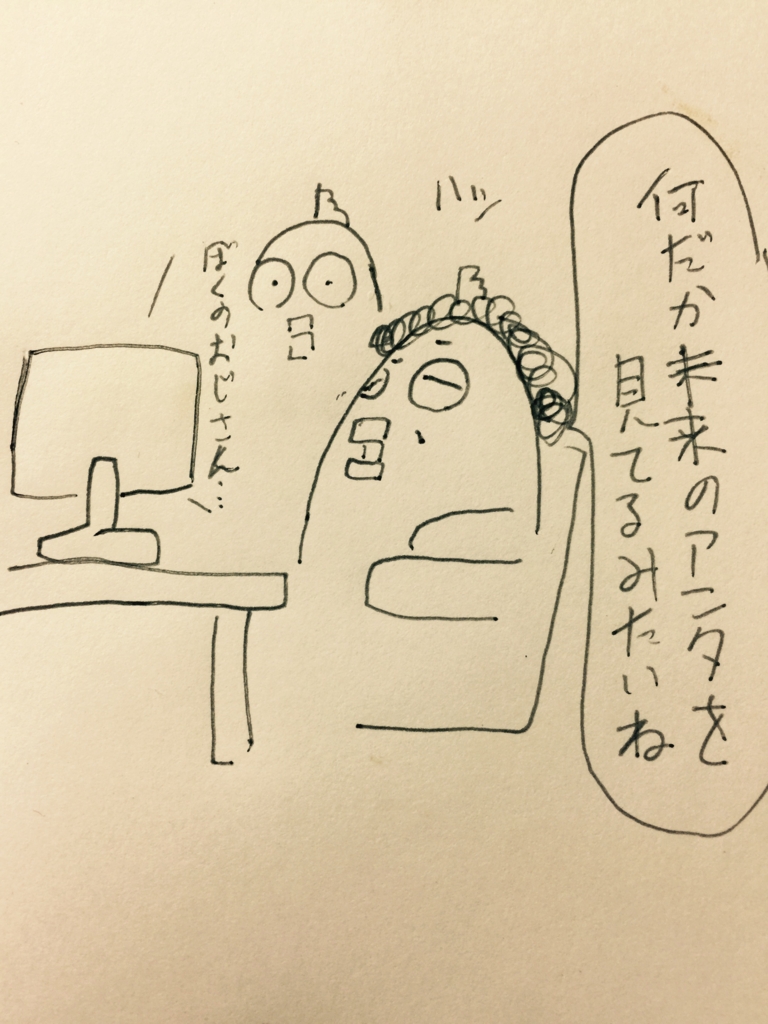 何だか未来のアンタを
見てるみたいね
ハッ
ぼくのおじさん…